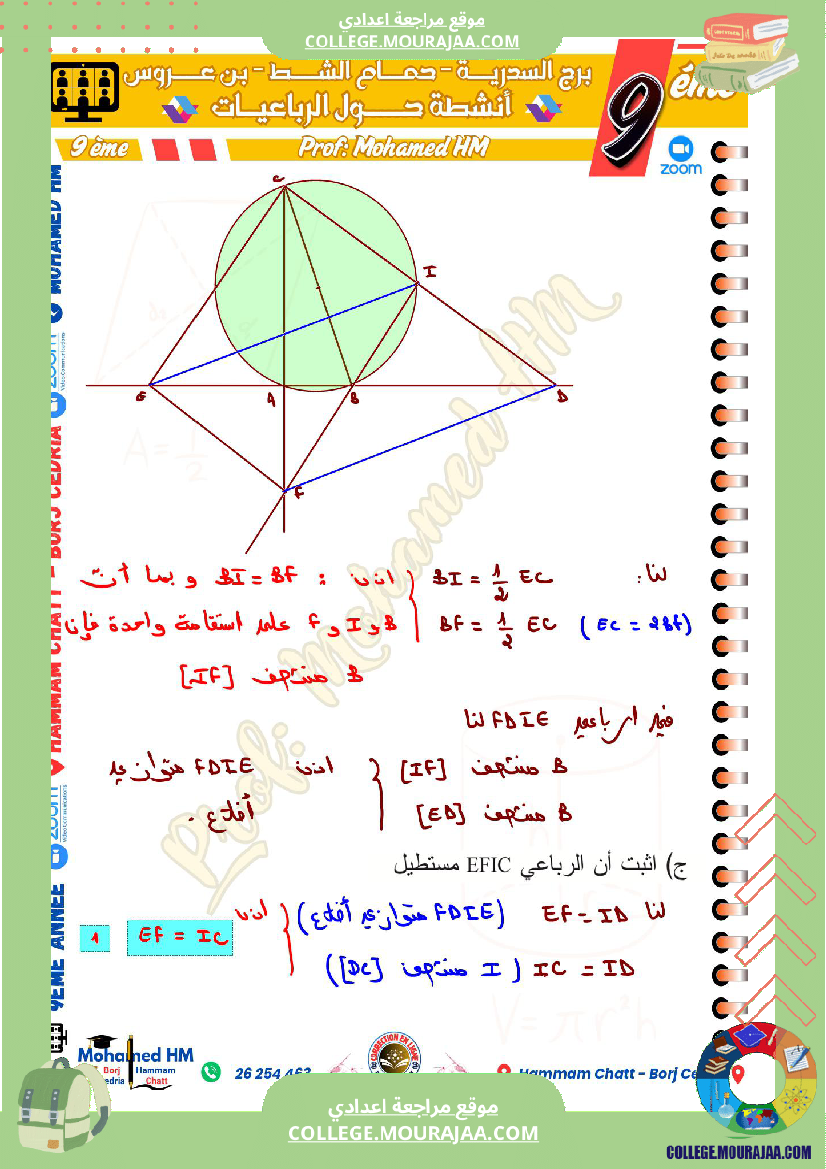 موقع مراجعة اعدادي
COLLEGE.MOURAJAA.COM
برج السدرية - حمام الشط - بن عروس
أنشطة حول الرباعيات
9 ème
Prof: Mohamed HM
9
ème
zoom
C
I
E
A
B
D
F
لنا: BI = 1/2 EC
BF = 1/2 EC (EC = 2BF)
اذن: BI = BF و بما أن
B و I و F على استقامة واحدة فإن
B منتصف [IF]
في الرباعي FDIE لنا
B منتصف [IF]
B منتصف [ED]
اذن FDIE متوازي
أضلاع .
ج) اثبت أن الرباعي EFIC مستطيل
لنا EF = ID (FDIE متوازي أضلاع)
IC = ID (I منتصف [DC])
اذن EF = IC 1
Prof: Mohamed HM
9EME ANNEE
HAMMAM CHATT - BORJ CEDRIA
zoom
MOHAMED HM
Mohamed HM
Borj
Hammam
Chatt
CORRECTION EN LIGNE
26 254 462
Hammam Chatt - Borj Ce
V = πr²h
موقع مراجعة اعدادي
COLLEGE.MOURAJAA.COM
COLLEGE.MOURAJAA.COM